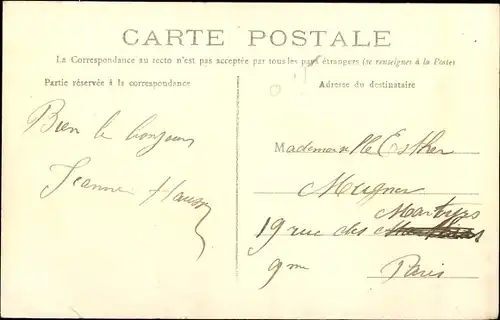 CARTE POSTALE
La Correspondance au recto n'est pas acceptée par tous les pays étrangers (se renseigner à la Poste)
Partie réservée à la correspondance
Adresse du destinataire
Bien le bonjour
Jeanne
Mademoiselle Esther
Mugner
Martyrs
19 rue des
9me
Paris